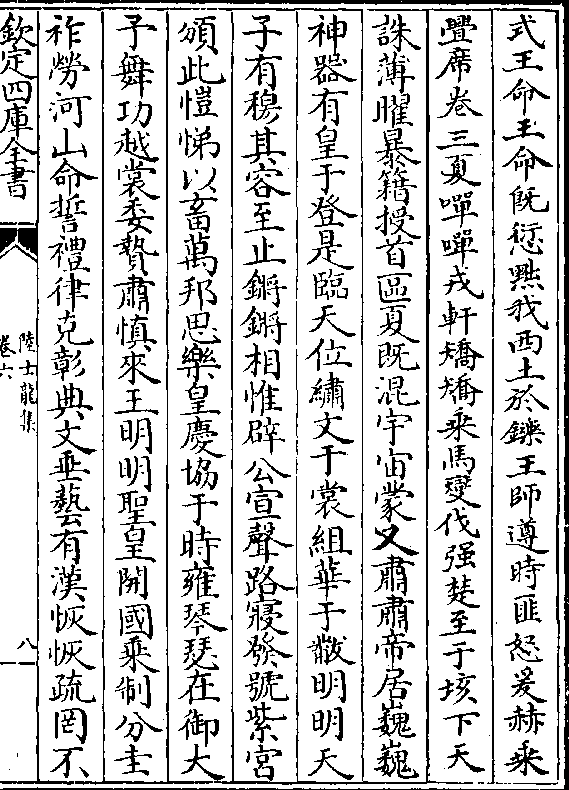 式王命王命既愆黜我西土於鑠王師遵時匪怒爰赫乗
舋席卷三夏嘽嘽戎軒矯矯乗馬變伐强楚至于垓下天
誅薄曜暴籍授首區夏既混宇宙蒙乂肅肅帝居巍巍
神器有皇于登是臨天位繡文于裳組華于黻明明天
子有穆其容至止鏘鏘相惟辟公宣聲路寢發號紫宮
頒此愷悌以畜萬邦思樂皇慶協于時雍琴瑟在御大
予舞功越裳委贄肅慎來王明明聖皇開國乘制分圭
祚勞河山命誓禮律克彰典文垂藝有漢恢恢疏罔不
欽定四庫全書
陸士龍集
卷六
八